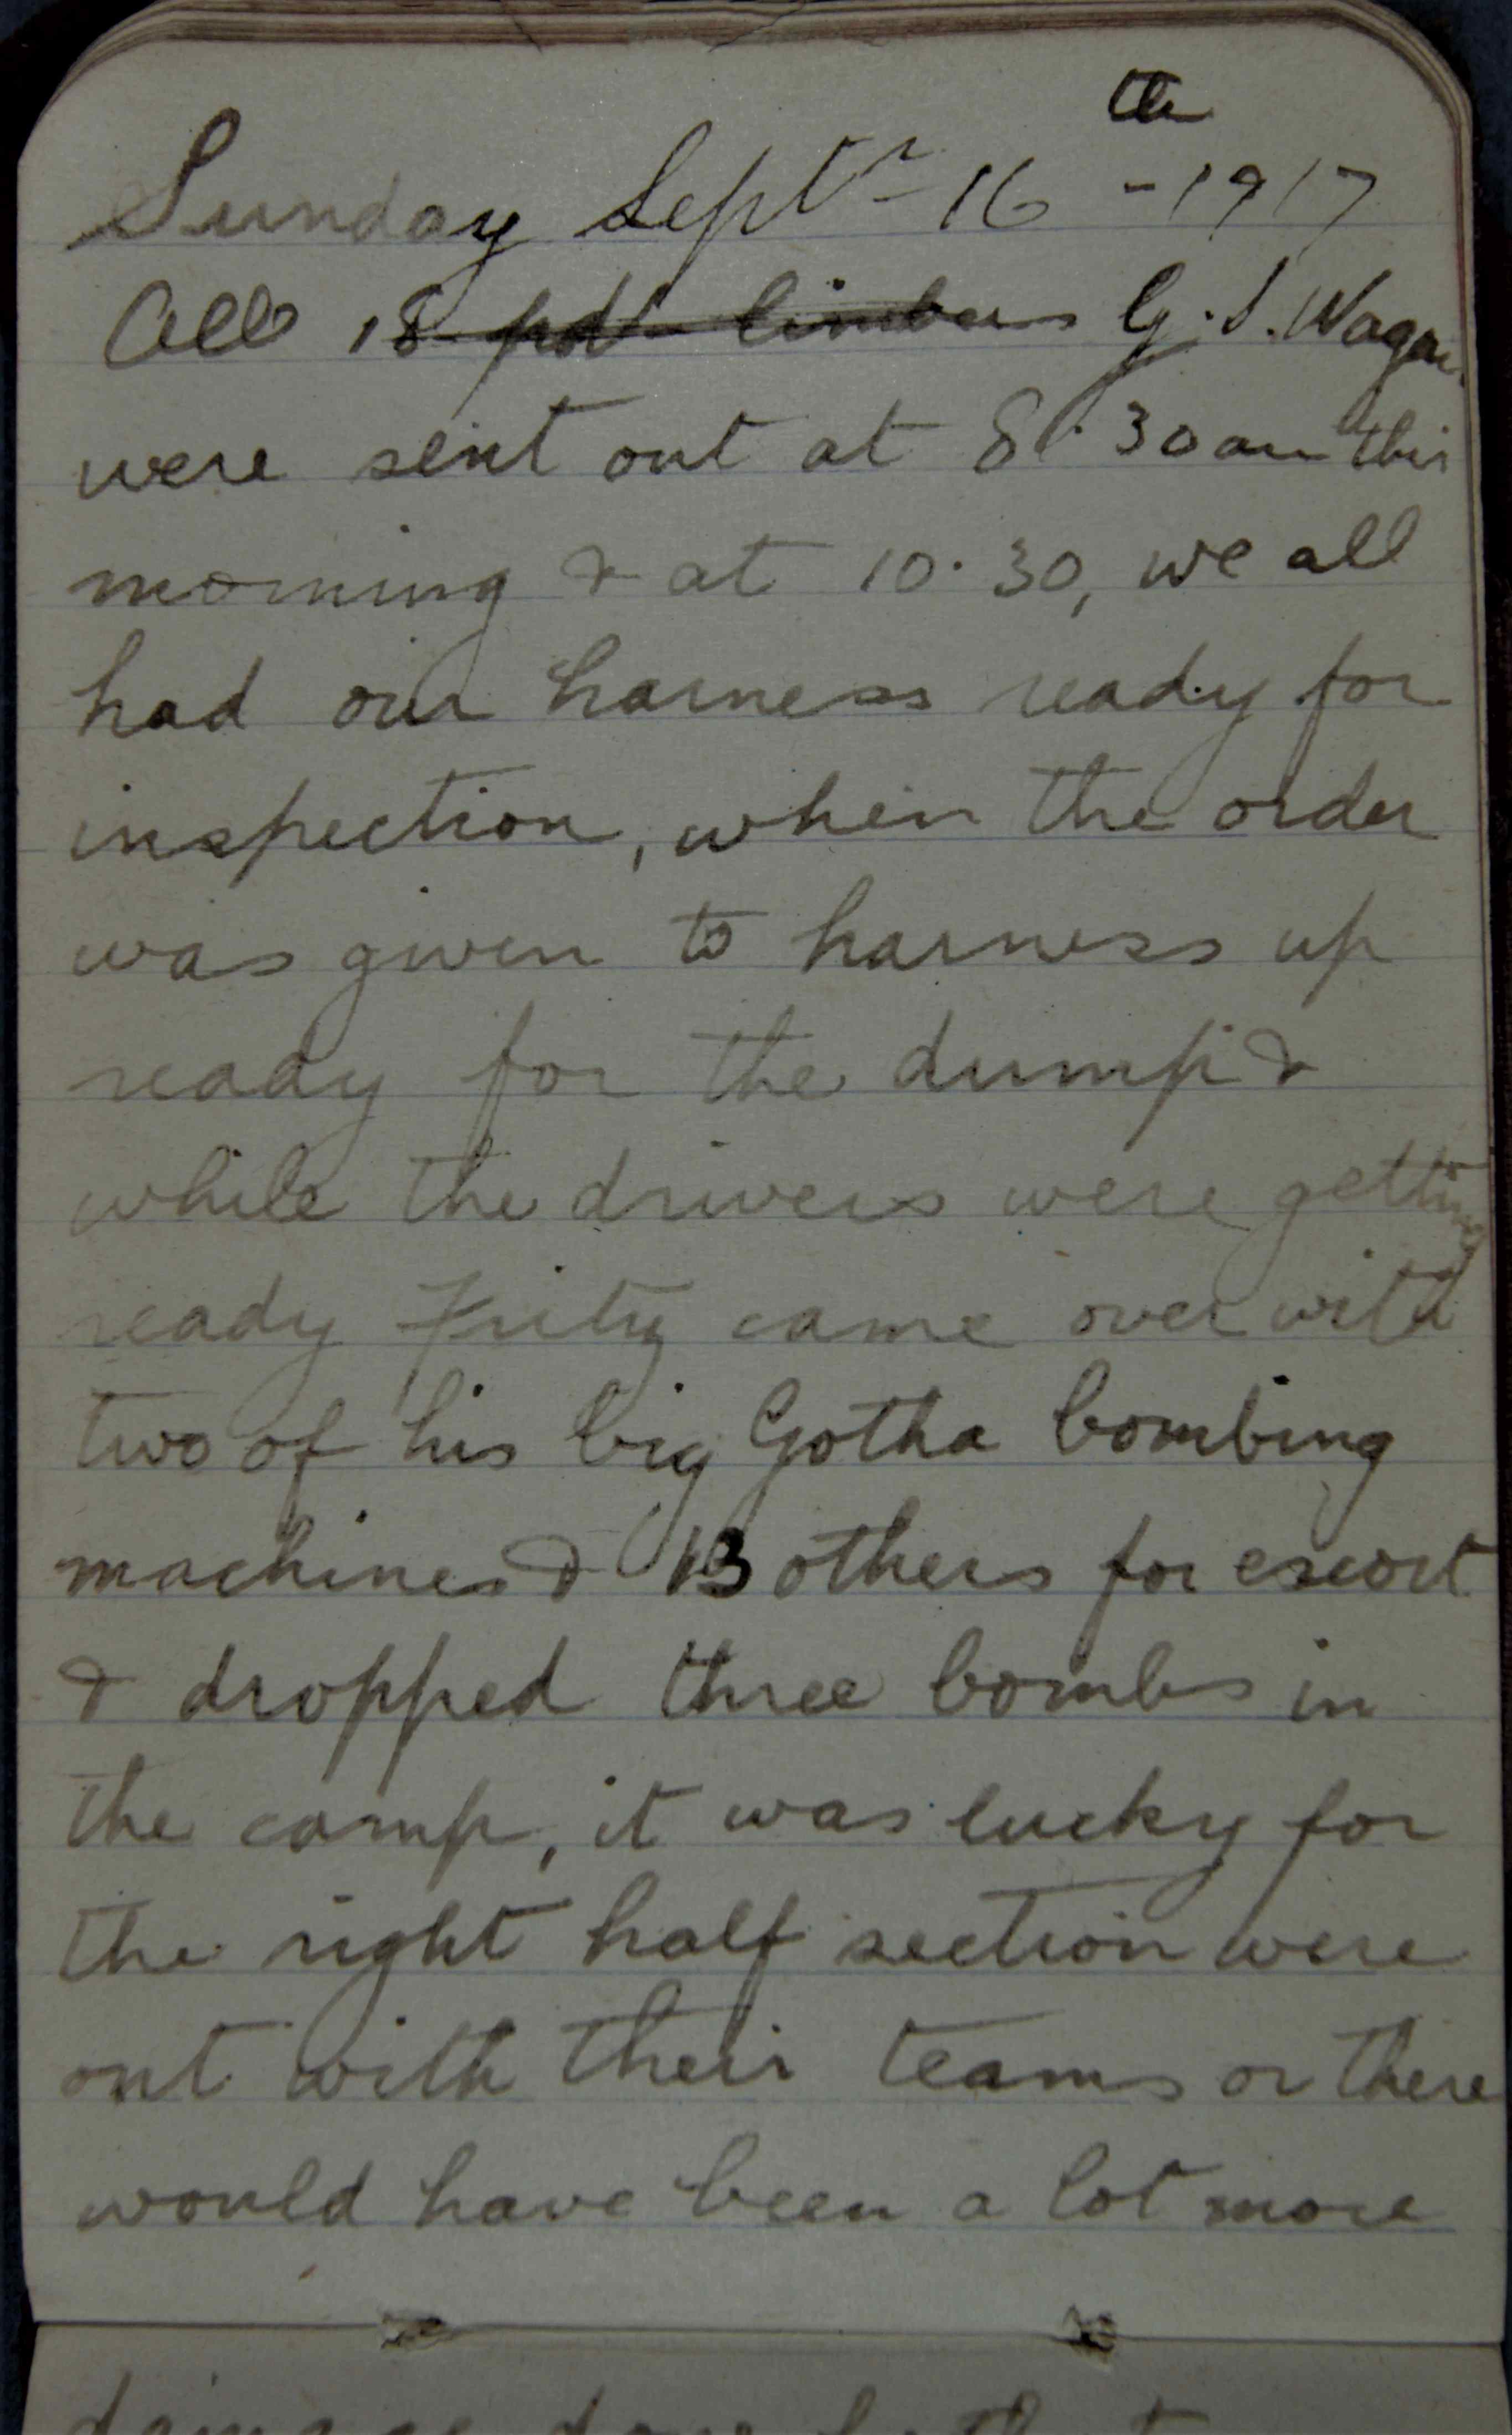 Sunday Septr 16th - 1917
All 18 pdr limbers G.S. Wagons
were sent out at 8.30 am this
morning & at 10.30, we all
had our harness ready for
inspection, when the order
was given to harness up
ready for the dump &
while the drivers were getting
ready Fritz came over with
two of his big Gotha bombing
machines & 13 others for escort
& dropped three bombs in
the camp, it was lucky for
the right half section were
out with their teams or there
would have been a lot more
damage done